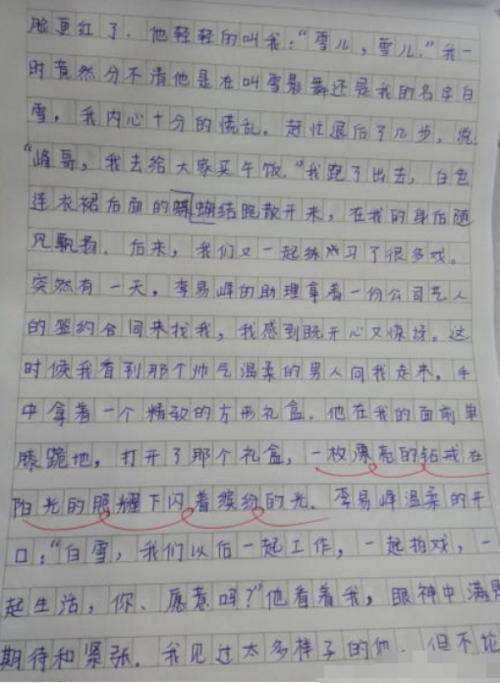 脸更红了。他轻轻的叫我:“雪儿,雪儿。”我一
时竟然分不清他是在叫雪影舞还是我的名字白
雪。我内心十分的慌乱。赶忙退后了几步,说
“峰哥,我去给大家买午饭。”我跑了出去,白色
连衣裙后面的蝴蝶结跑散开来,在我的身后随
风飘扬。后来,我们又一起练习了很多戏。
突然有一天,李易峰的助理拿着一份公司艺人
的签约合同来找我,我感到既开心又惊讶。这
时候我看到那个帅气温柔的男人向我走来,手
中拿着一个精致的方形礼盒。他在我的面前单
膝跪地,打开了那个礼盒,一枚漂亮的钻戒在
阳光的照耀下闪着缤纷的光。李易峰温柔的开
口:“白雪,我们以后一起工作,一起拍戏,一
起生活,你、愿意吗?”他看着我,眼神中满是
期待和紧张。我见过太多样子的他。但不论